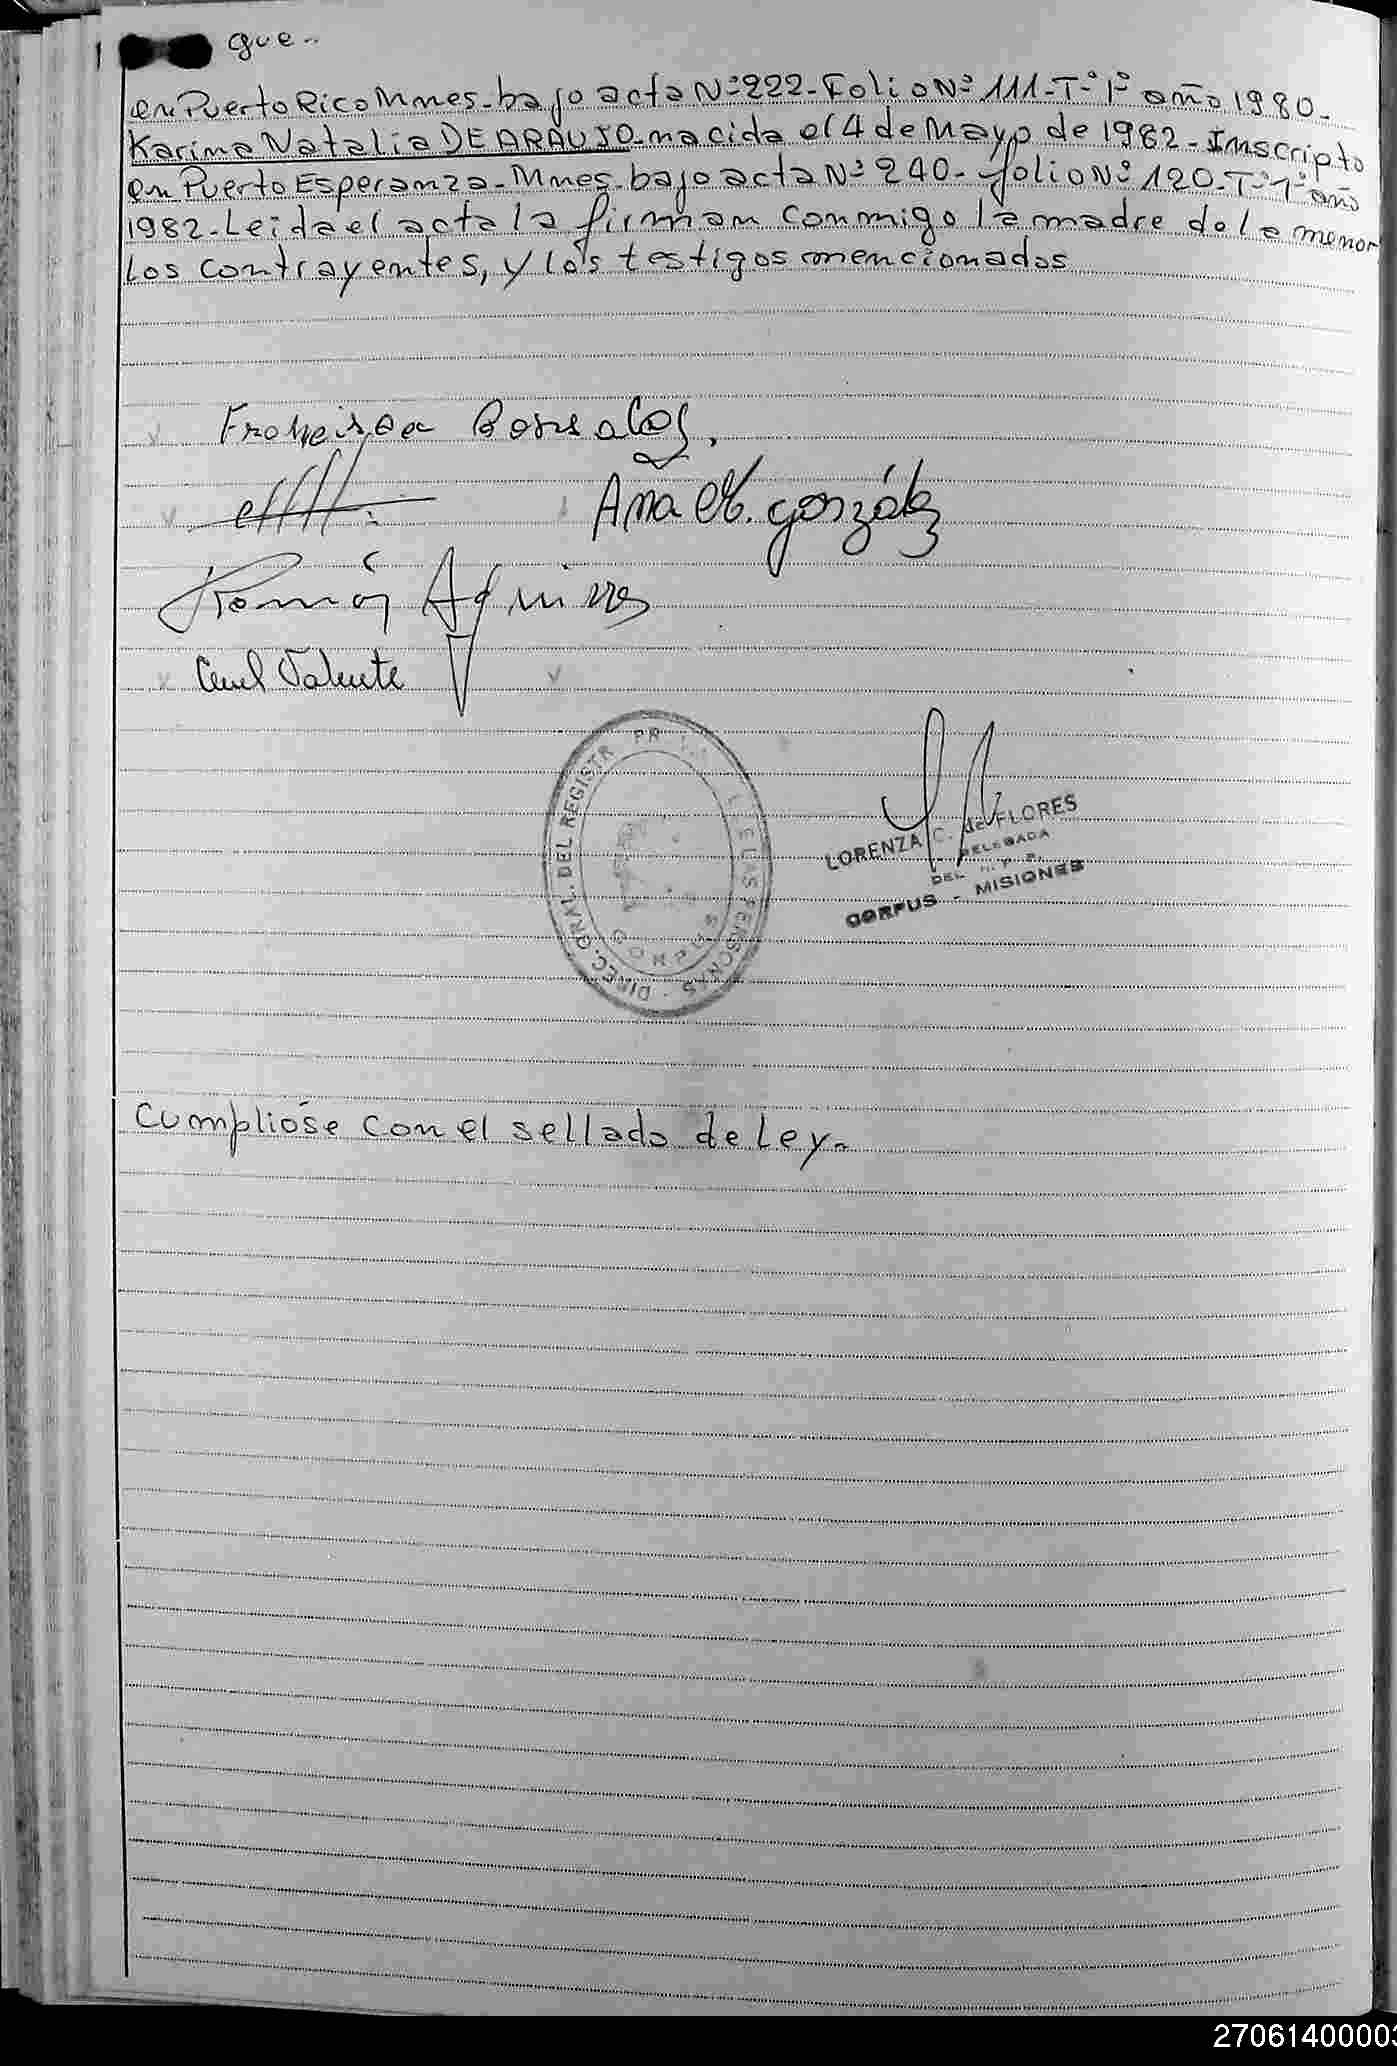 que..
en Puerto Rico Mnes. bajo acta Nº 222 - Folio Nº 111 - Tº 1º año 1980 -
Karina Natalia DE ARAUJO - nacida el 4 de Mayo de 1982 - Inscripto
en Puerto Esperanza - Mnes. bajo acta Nº 240 - folio Nº 120 - Tº 1º año
1982 - Leida el acta la firman conmigo la madre de la menor
los contrayentes, y los testigos mencionados
Ana M. González
Ramón
Valente
DIREC. GRAL. DEL REGISTR PR DE LAS PERSONAS
LORENZA C. de FLORES
DELEGADA
DEL R. P. P.
CORPUS - MISIONES
Cumplióse con el sellado de Ley.
27061400003